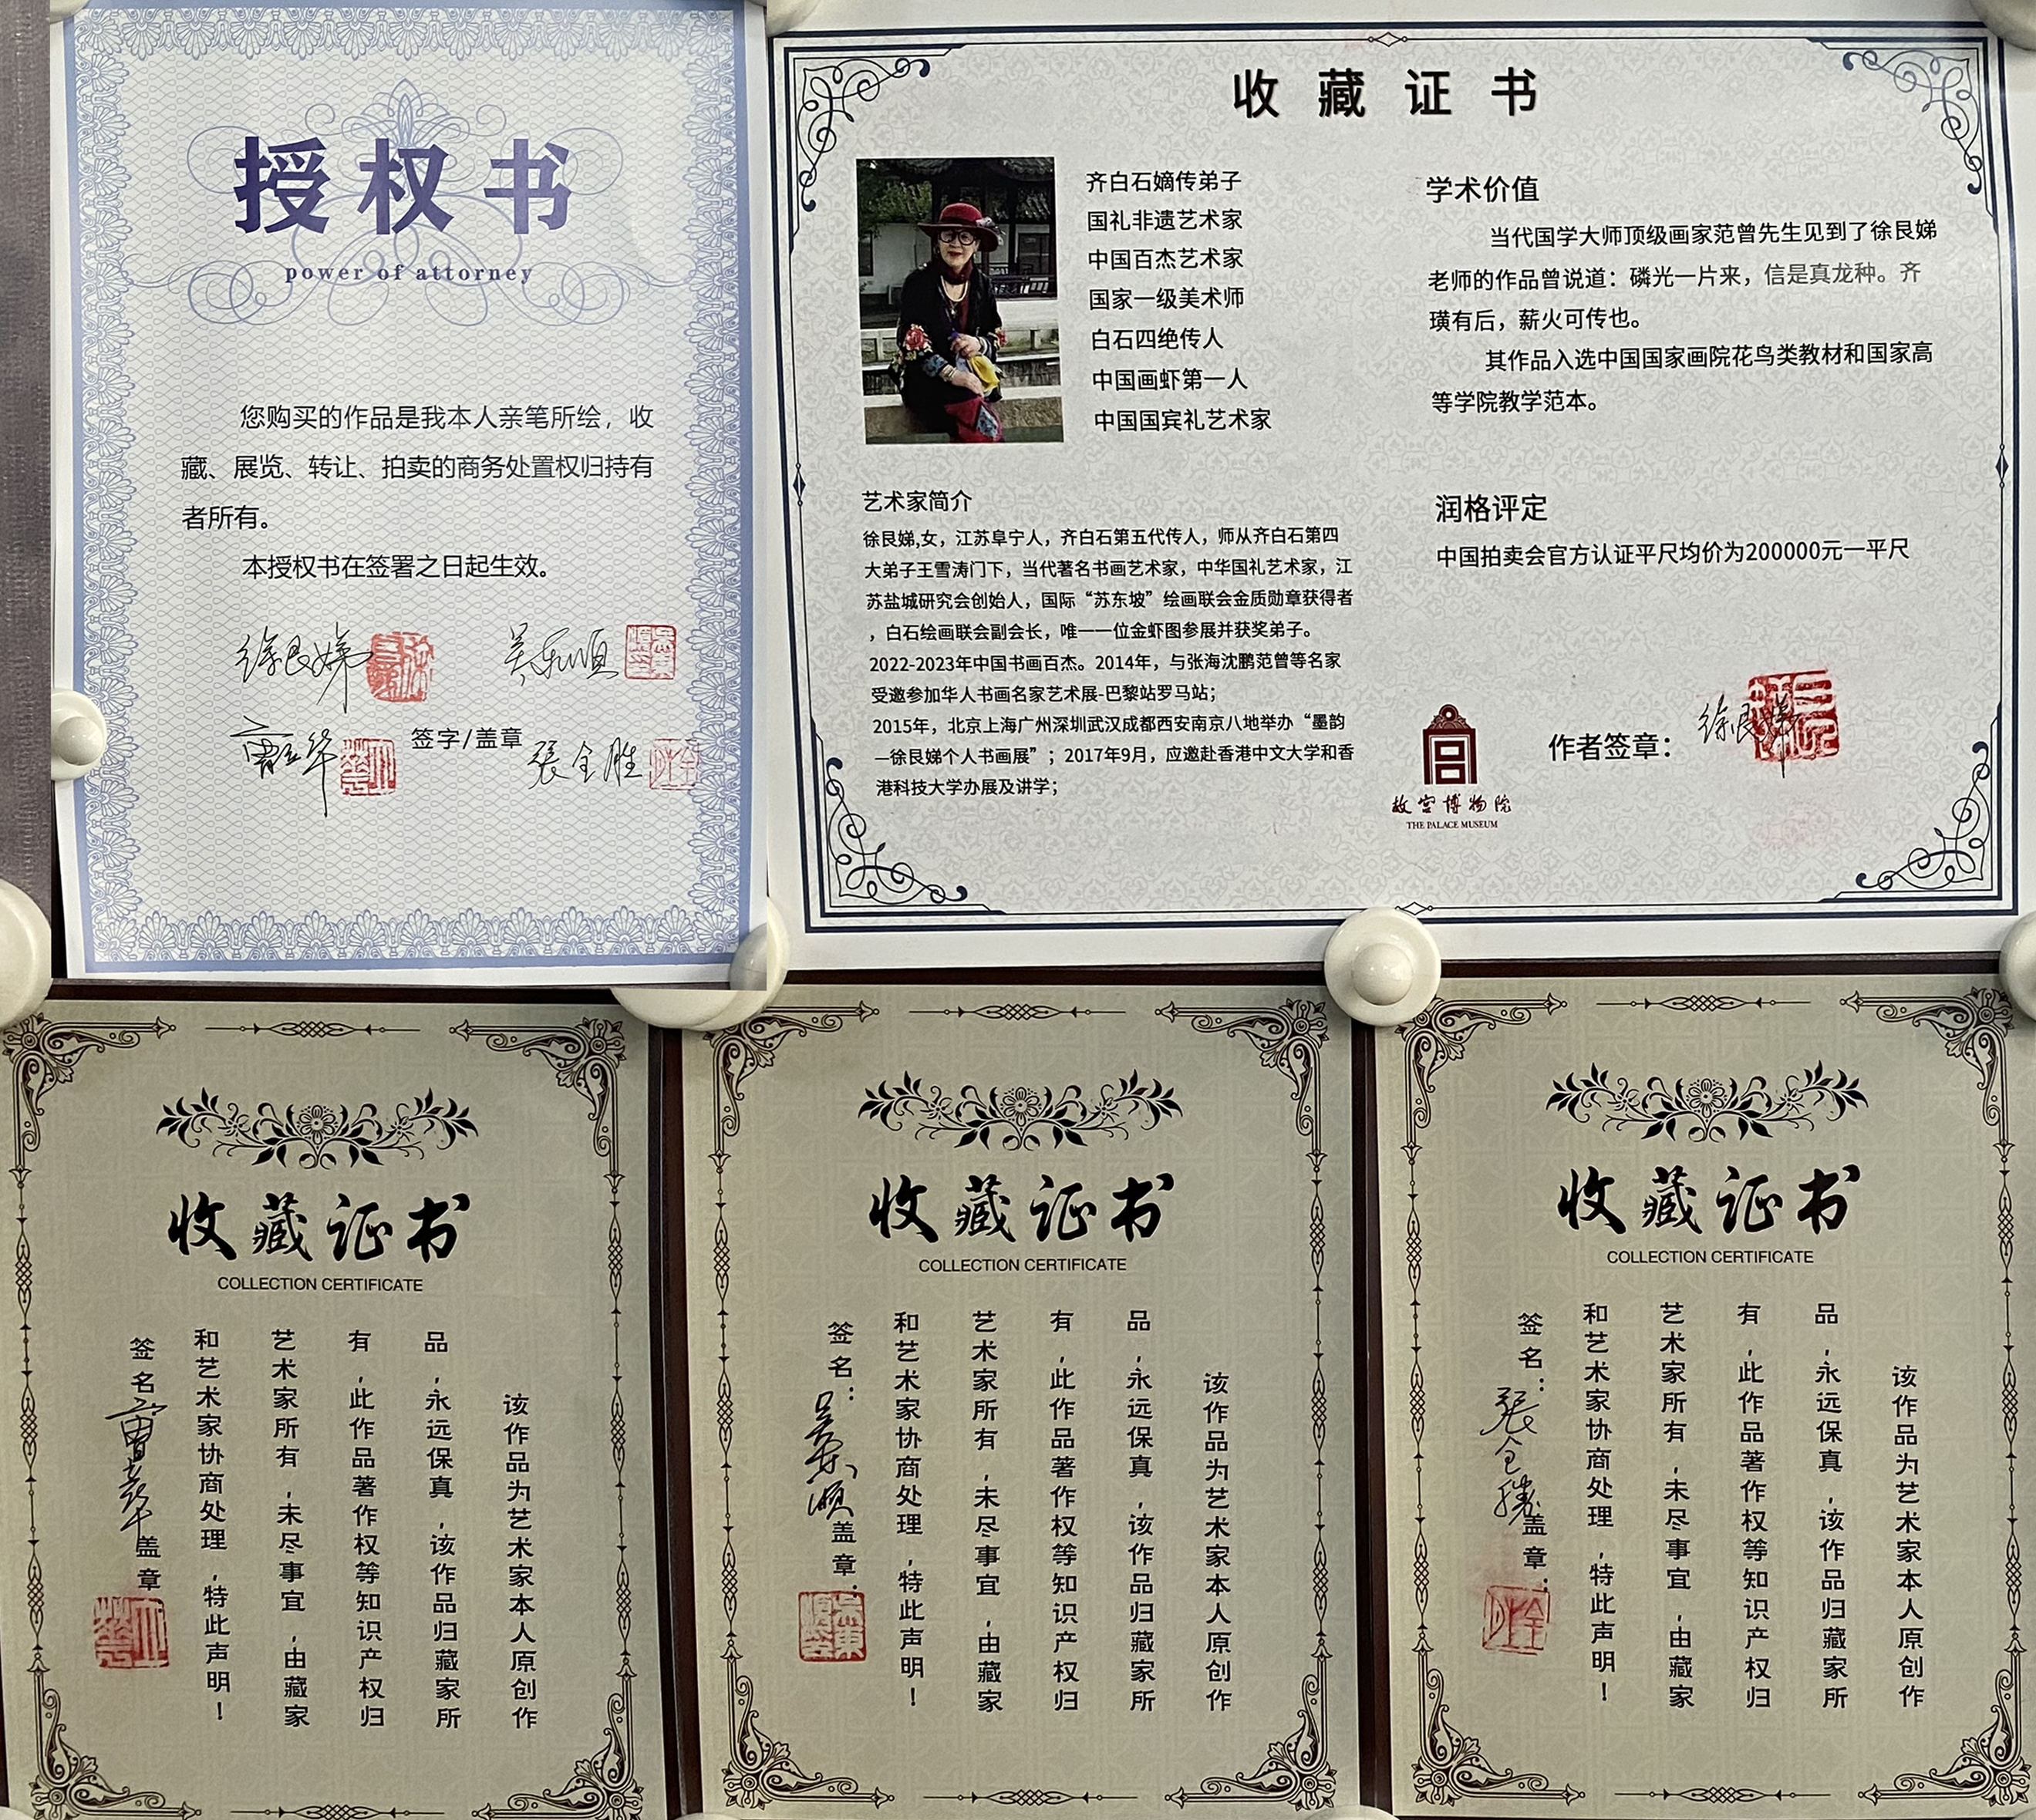 授权书
power of attorney
您购买的作品是我本人亲笔所绘，收
藏、展览、转让、拍卖的商务处置权归持有
者所有。
本授权书在签署之日起生效。
徐艮娣
吴东顺
签字/盖章
張全胜
收藏证书
齐白石嫡传弟子
国礼非遗艺术家
中国百杰艺术家
国家一级美术师
白石四绝传人
中国画虾第一人
中国国宾礼艺术家
艺术家简介
徐艮娣,女，江苏阜宁人，齐白石第五代传人，师从齐白石第四
大弟子王雪涛门下，当代著名书画艺术家，中华国礼艺术家，江
苏盐城研究会创始人，国际“苏东坡”绘画联会金质勋章获得者
，白石绘画联会副会长，唯一一位金虾图参展并获奖弟子。
2022-2023年中国书画百杰。2014年，与张海沈鹏范曾等名家
受邀参加华人书画名家艺术展-巴黎站罗马站；
2015年，北京上海广州深圳武汉成都西安南京八地举办“墨韵
—徐艮娣个人书画展”；2017年9月，应邀赴香港中文大学和香
港科技大学办展及讲学；
学术价值
当代国学大师顶级画家范曾先生见到了徐艮娣
老师的作品曾说道：磷光一片来，信是真龙种。齐
璜有后，薪火可传也。
其作品入选中国国家画院花鸟类教材和国家高
等学院教学范本。
润格评定
中国拍卖会官方认证平尺均价为200000元一平尺
故宫博物院
THE PALACE MUSEUM
作者签章：
徐艮娣
收藏证书
COLLECTION CERTIFICATE
该作品为艺术家本人原创作
品，永远保真，该作品归藏家所
有，此作品著作权等知识产权归
艺术家所有，未尽事宜，由藏家
和艺术家协商处理，特此声明！
签名
盖章
收藏证书
COLLECTION CERTIFICATE
该作品为艺术家本人原创作
品，永远保真，该作品归藏家所
有，此作品著作权等知识产权归
艺术家所有，未尽事宜，由藏家
和艺术家协商处理，特此声明！
签名：吴东顺盖章：
收藏证书
COLLECTION CERTIFICATE
该作品为艺术家本人原创作
品，永远保真，该作品归藏家所
有，此作品著作权等知识产权归
艺术家所有，未尽事宜，由藏家
和艺术家协商处理，特此声明！
签名：張全勝盖章：